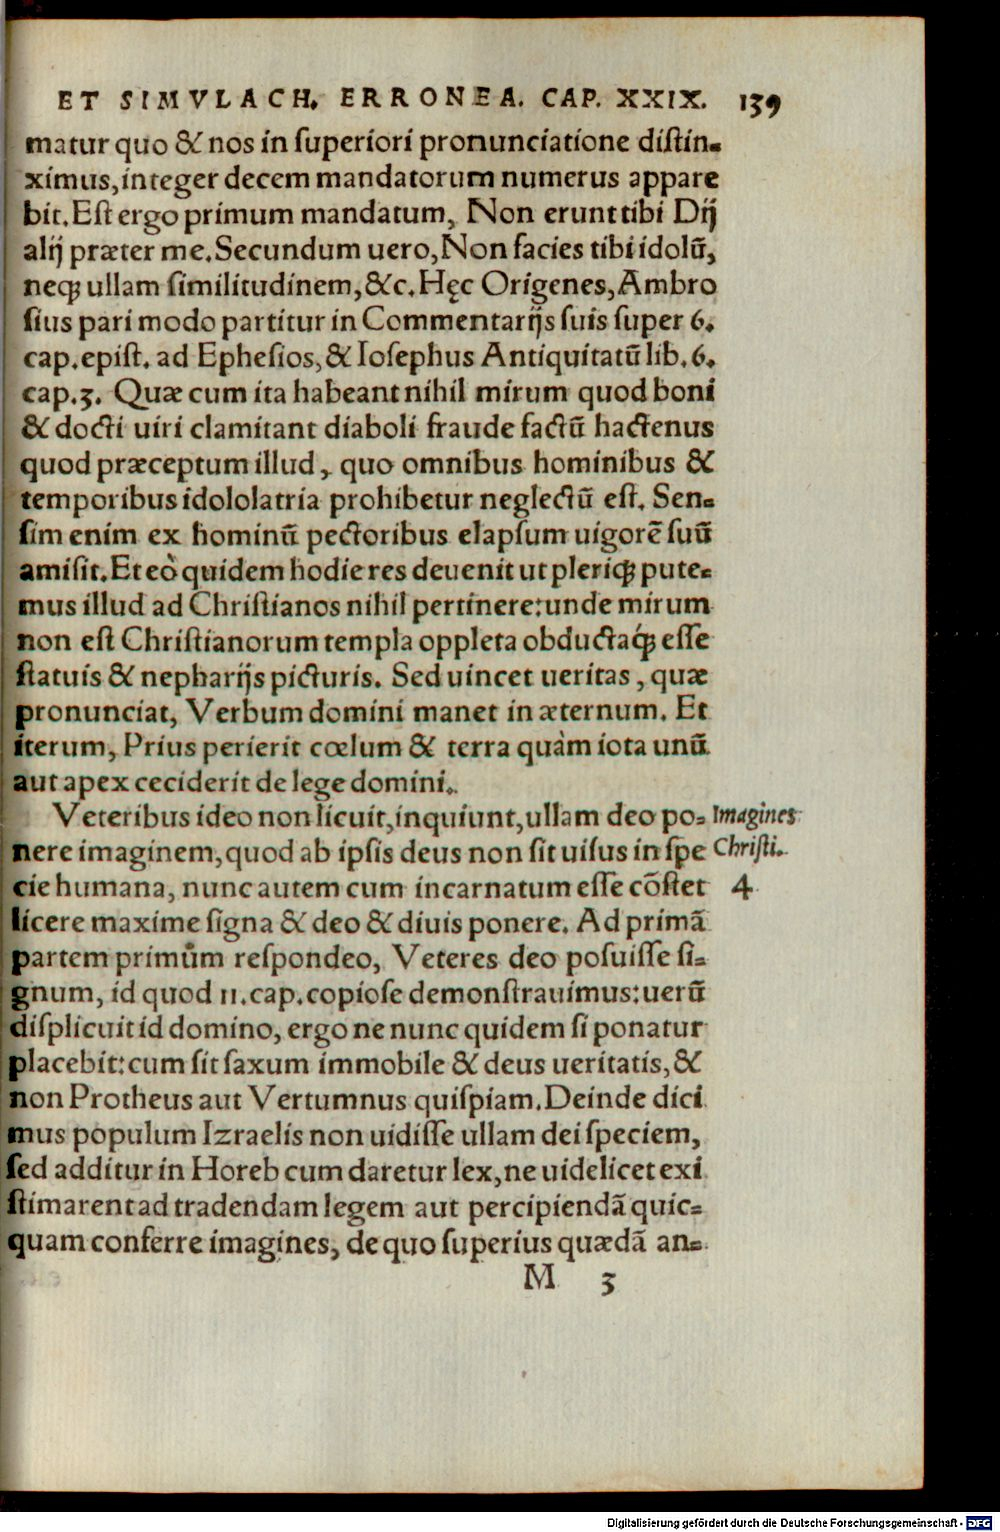 ET SIMVLACH. ERRONEA. CAP. XXIX. 139
matur quo & nos in ſuperiori pronunciatione diſtin-
ximus, integer decem mandatorum numerus appare
bit. Eſt ergo primum mandatum, Non erunt tibi Dij
alij præter me. Secundum uero, Non facies tibi idolū,
neqꝫ ullam ſimilitudinem, &c. Hęc Origenes, Ambro
ſius pari modo partitur in Commentarijs ſuis ſuper 6.
cap. epiſt. ad Epheſios, & Ioſephus Antiquitatū lib. 6.
cap. 3. Quæ cum ita habeant nihil mirum quod boni
& docti uiri clamitant diaboli fraude factū hactenus
quod præceptum illud, quo omnibus hominibus &
temporibus idololatria prohibetur neglectū eſt. Sen-
ſim enim ex hominū pectoribus elapſum uigorē ſuū
amiſit. Et eò quidem hodie res deuenit ut pleriqꝫ pute-
mus illud ad Chriſtianos nihil pertinere: unde mirum
non eſt Chriſtianorum templa oppleta obductáqꝫ eſſe
ſtatuis & nepharijs picturis. Sed uincet ueritas, quæ
pronunciat, Verbum domini manet in æternum. Et
iterum, Prius perierit cœlum & terra quàm iota unū
aut apex ceciderit de lege domini.
Veteribus ideo non licuit, inquiunt, ullam deo po- Imagines
nere imaginem, quod ab ipſis deus non ſit uiſus in ſpe Chriſti.
cie humana, nunc autem cum incarnatum eſſe cōſtet 4
licere maxime ſigna & deo & diuis ponere. Ad primā
partem primům reſpondeo, Veteres deo poſuiſſe ſi-
gnum, id quod 11. cap. copioſe demonſtrauimus: uerū
diſplicuit id domino, ergo ne nunc quidem ſi ponatur
placebit: cum ſit ſaxum immobile & deus ueritatis, &
non Protheus aut Vertumnus quiſpiam. Deinde dici
mus populum Izraelis non uidiſſe ullam dei ſpeciem,
ſed additur in Horeb cum daretur lex, ne uidelicet exi
ſtimarent ad tradendam legem aut percipiendā quic-
quam conferre imagines, de quo ſuperius quædā an-
M 3
Digitalisierung gefördert durch die Deutsche Forschungsgemeinschaft - DFG